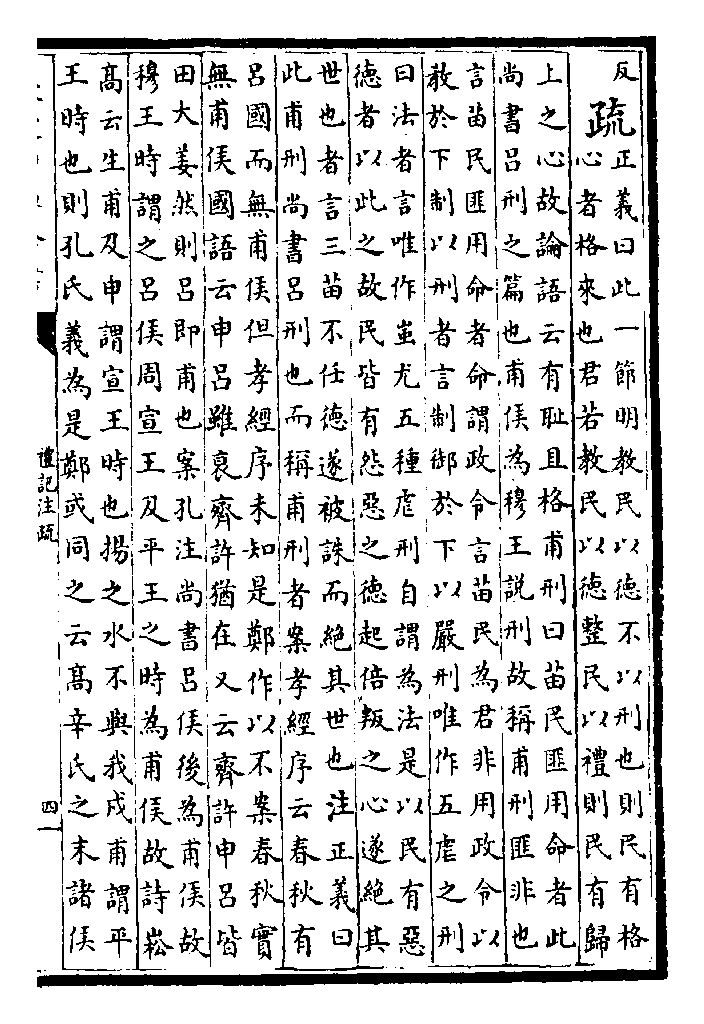 反
疏
正義曰此一節明教民以德不以刑也則民有格
心者格來也君若教民以德整民以禮則民有歸
上之心故論語云有耻且格甫刑曰苗民匪用命者此
尚書吕刑之篇也甫侯為穆王說刑故稱甫刑匪非也
言苗民匪用命者命謂政令言苗民為君非用政令以
敎於下制以刑者言制御於下以嚴刑唯作五虐之刑
曰法者言唯作蚩尤五種虐刑自謂為法是以民有惡
德者以此之故民皆有怨惡之德起倍叛之心遂絶其
世也者言三苗不任德遂被誅而絶其世也注正義曰
此甫刑尚書吕刑也而稱甫刑者案孝經序云春秋有
吕國而無甫侯但孝經序未知是鄭作以不案春秋實
無甫侯國語云申吕雖衰齊許猶在又云齊許申吕皆
田大姜然則吕即甫也案孔注尚書吕侯後為甫侯故
穆王時謂之吕侯周宣王及平王之時為甫侯故詩崧
髙云生甫及申謂宣王時也揚之水不與我戍甫謂平
王時也則孔氏義為是鄭或同之云髙辛氏之末諸侯
禮記注疏
四一